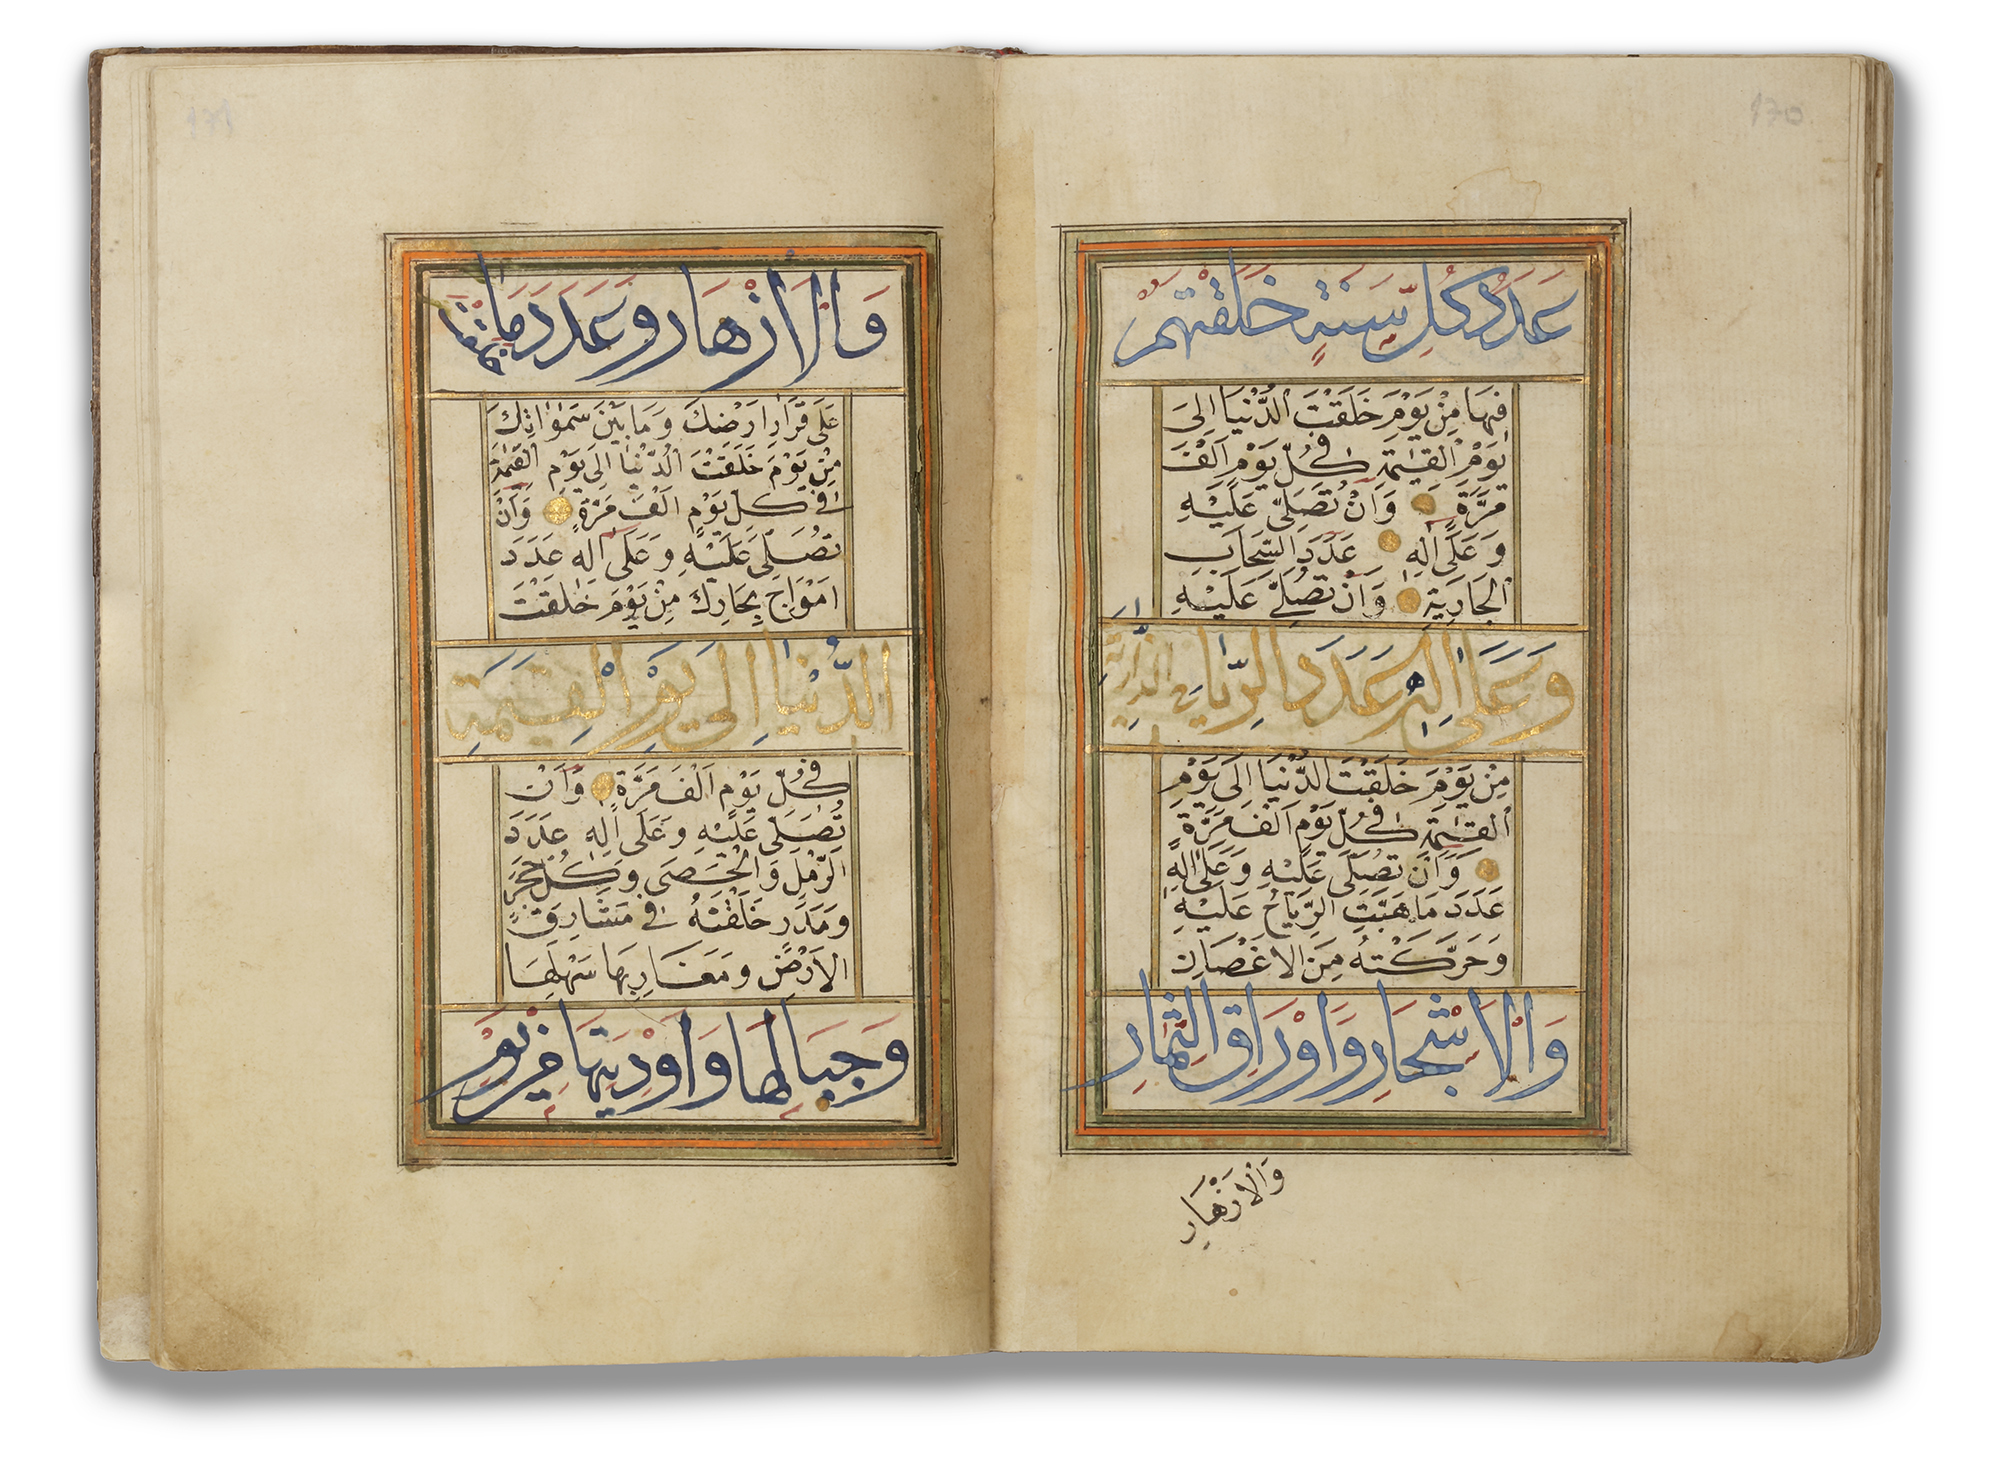 عَدَدَ كُلِّ سَنَةٍ خَلَقْتَهُمْ
فِيهَا مِنْ يَوْمَ خَلَقْتَ الدُّنْيَا اِلَى
يَوْمِ الْقِيٰمَةِ فِى كُلِّ يَوْمٍ اَلْفَ
مَرَّةٍ وَاَنْ تُصَلِّىَ عَلَيْهِ
وَعَلٰى اٰلِهِ عَدَدَ السَّحَابِ
الْجَارِيَةِ وَاَنْ تُصَلِّىَ عَلَيْهِ
وَعَلٰى اٰلِهِ عَدَدَ الرِّيَاحِ الذَّارِيَةِ
مِنْ يَوْمَ خَلَقْتَ الدُّنْيَا اِلَى يَوْمِ
الْقِيٰمَةِ فِى كُلِّ يَوْمٍ اَلْفَ مَرَّةٍ
وَاَنْ تُصَلِّىَ عَلَيْهِ وَعَلٰى اٰلِهِ
عَدَدَ مَا هَبَّتِ الرِّيَاحُ عَلَيْهِ
وَحَرَّكَتْهُ مِنَ الْاَغْصَانِ
وَالْاَشْجَارِ وَاَوْرَاقِ الثِّمَارِ
وَالْاَزْهَارِ
وَالْاَزْهَارِ وَعَدَدَ مَا خَلَقْتَ
عَلٰى قَرَارِ اَرْضِكَ وَمَا بَيْنَ سَمٰوَاتِكَ
مِنْ يَوْمَ خَلَقْتَ الدُّنْيَا اِلَى يَوْمِ الْقِيٰمَةِ
فِى كُلِّ يَوْمٍ اَلْفَ مَرَّةٍ وَاَنْ
تُصَلِّىَ عَلَيْهِ وَعَلٰى اٰلِهِ عَدَدَ
اَمْوَاجِ بِحَارِكَ مِنْ يَوْمَ خَلَقْتَ
الدُّنْيَا اِلَى يَوْمِ الْقِيٰمَةِ
فِى كُلِّ يَوْمٍ اَلْفَ مَرَّةٍ وَاَنْ
تُصَلِّىَ عَلَيْهِ وَعَلٰى اٰلِهِ عَدَدَ
الرَّمْلِ وَالْحَصٰى وَكُلِّ حَجَرٍ
وَمَدَرٍ خَلَقْتَهُ فِى مَشَارِقِ
الْاَرْضِ وَمَغَارِبِهَا سَهْلِهَا
وَجِبَالِهَا وَاَوْدِيَتِهَا مِنْ يَوْمِ